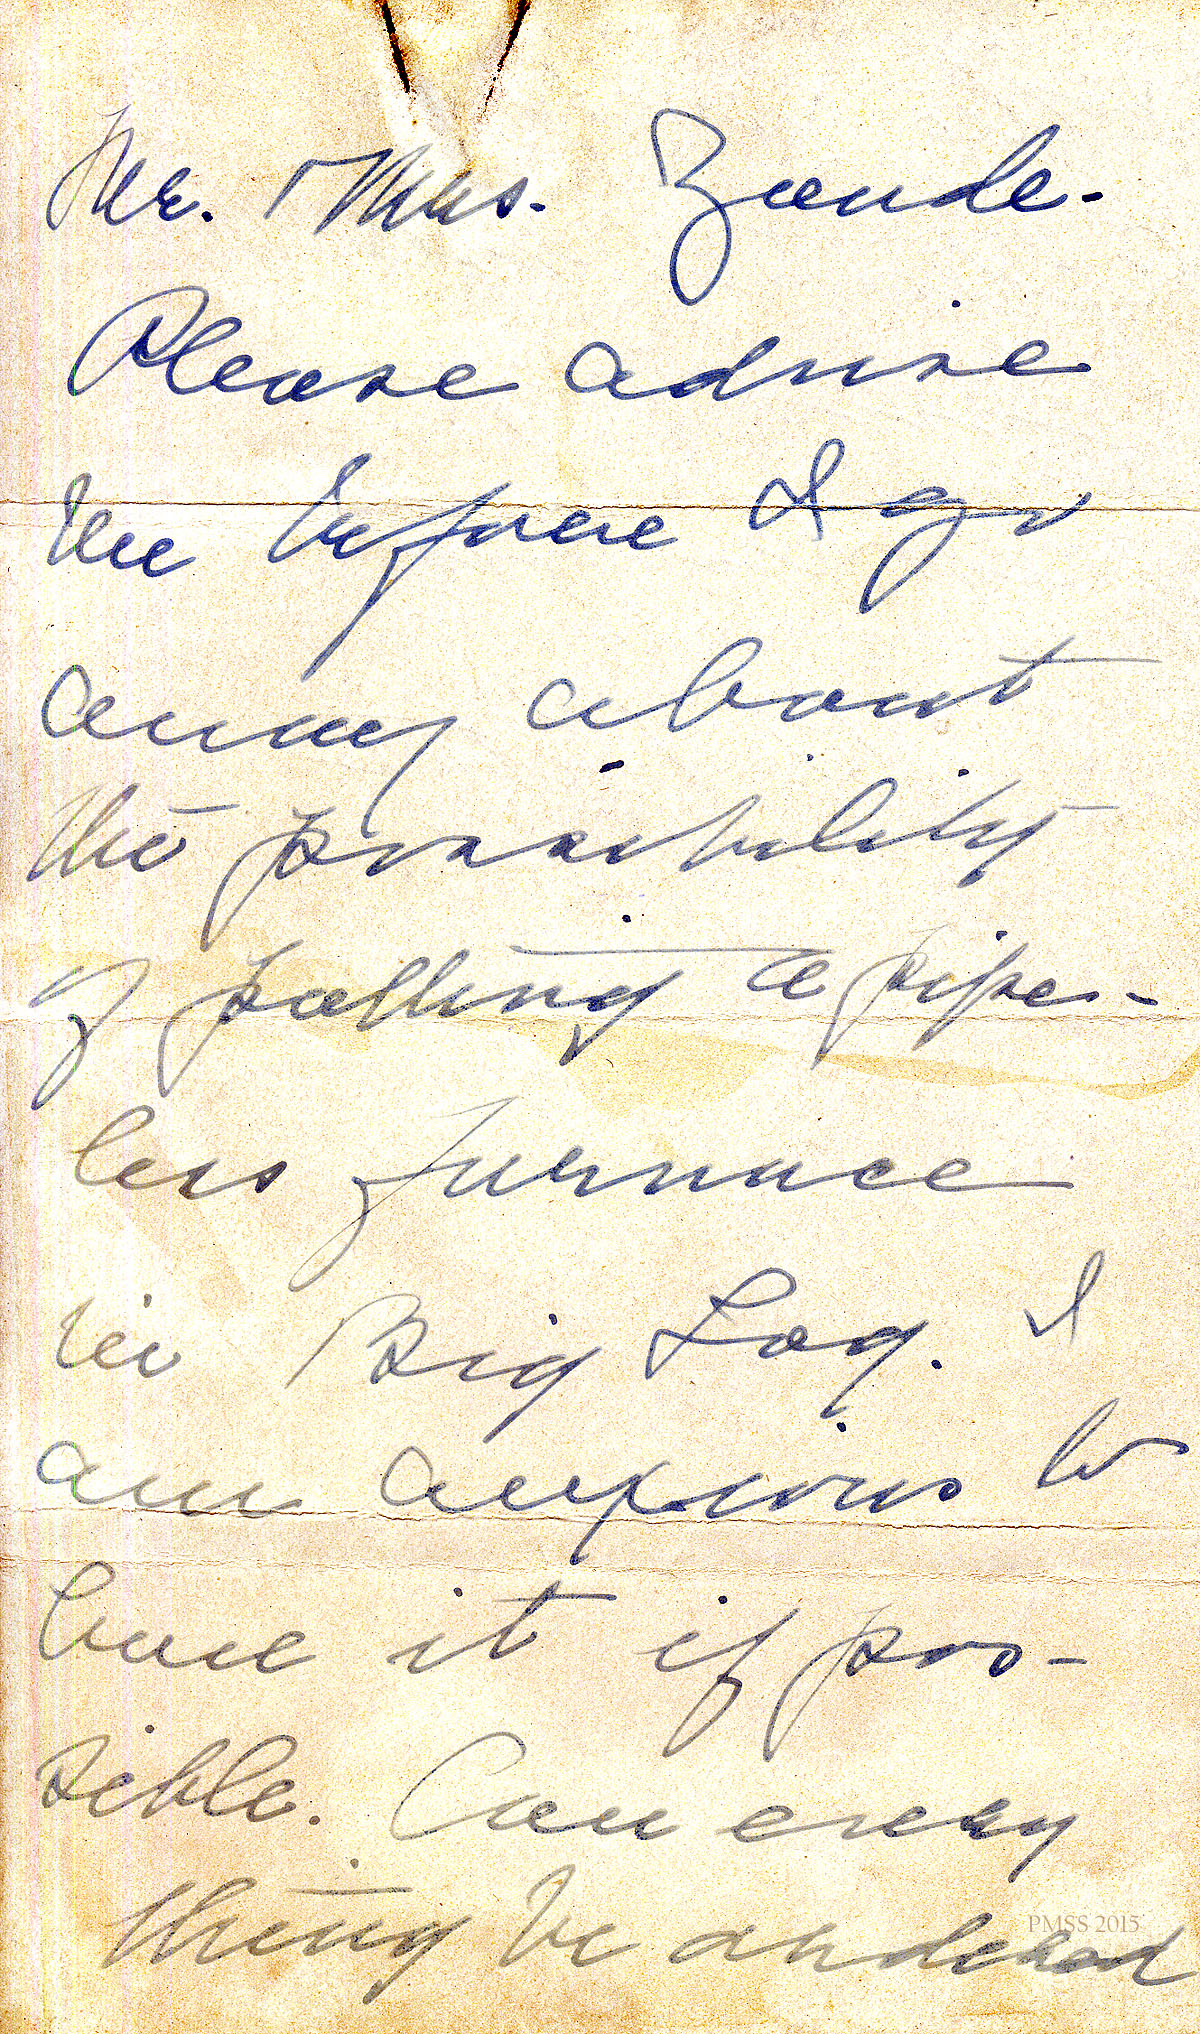 Mr. & Mrs. Zande.
Please advise
me before I go
away about
the possibility
of putting a pipe-
less furnace
in Big Log. I
am anxious to
have it if pos-
sible. Can every
thing be ordered
PMSS 2015